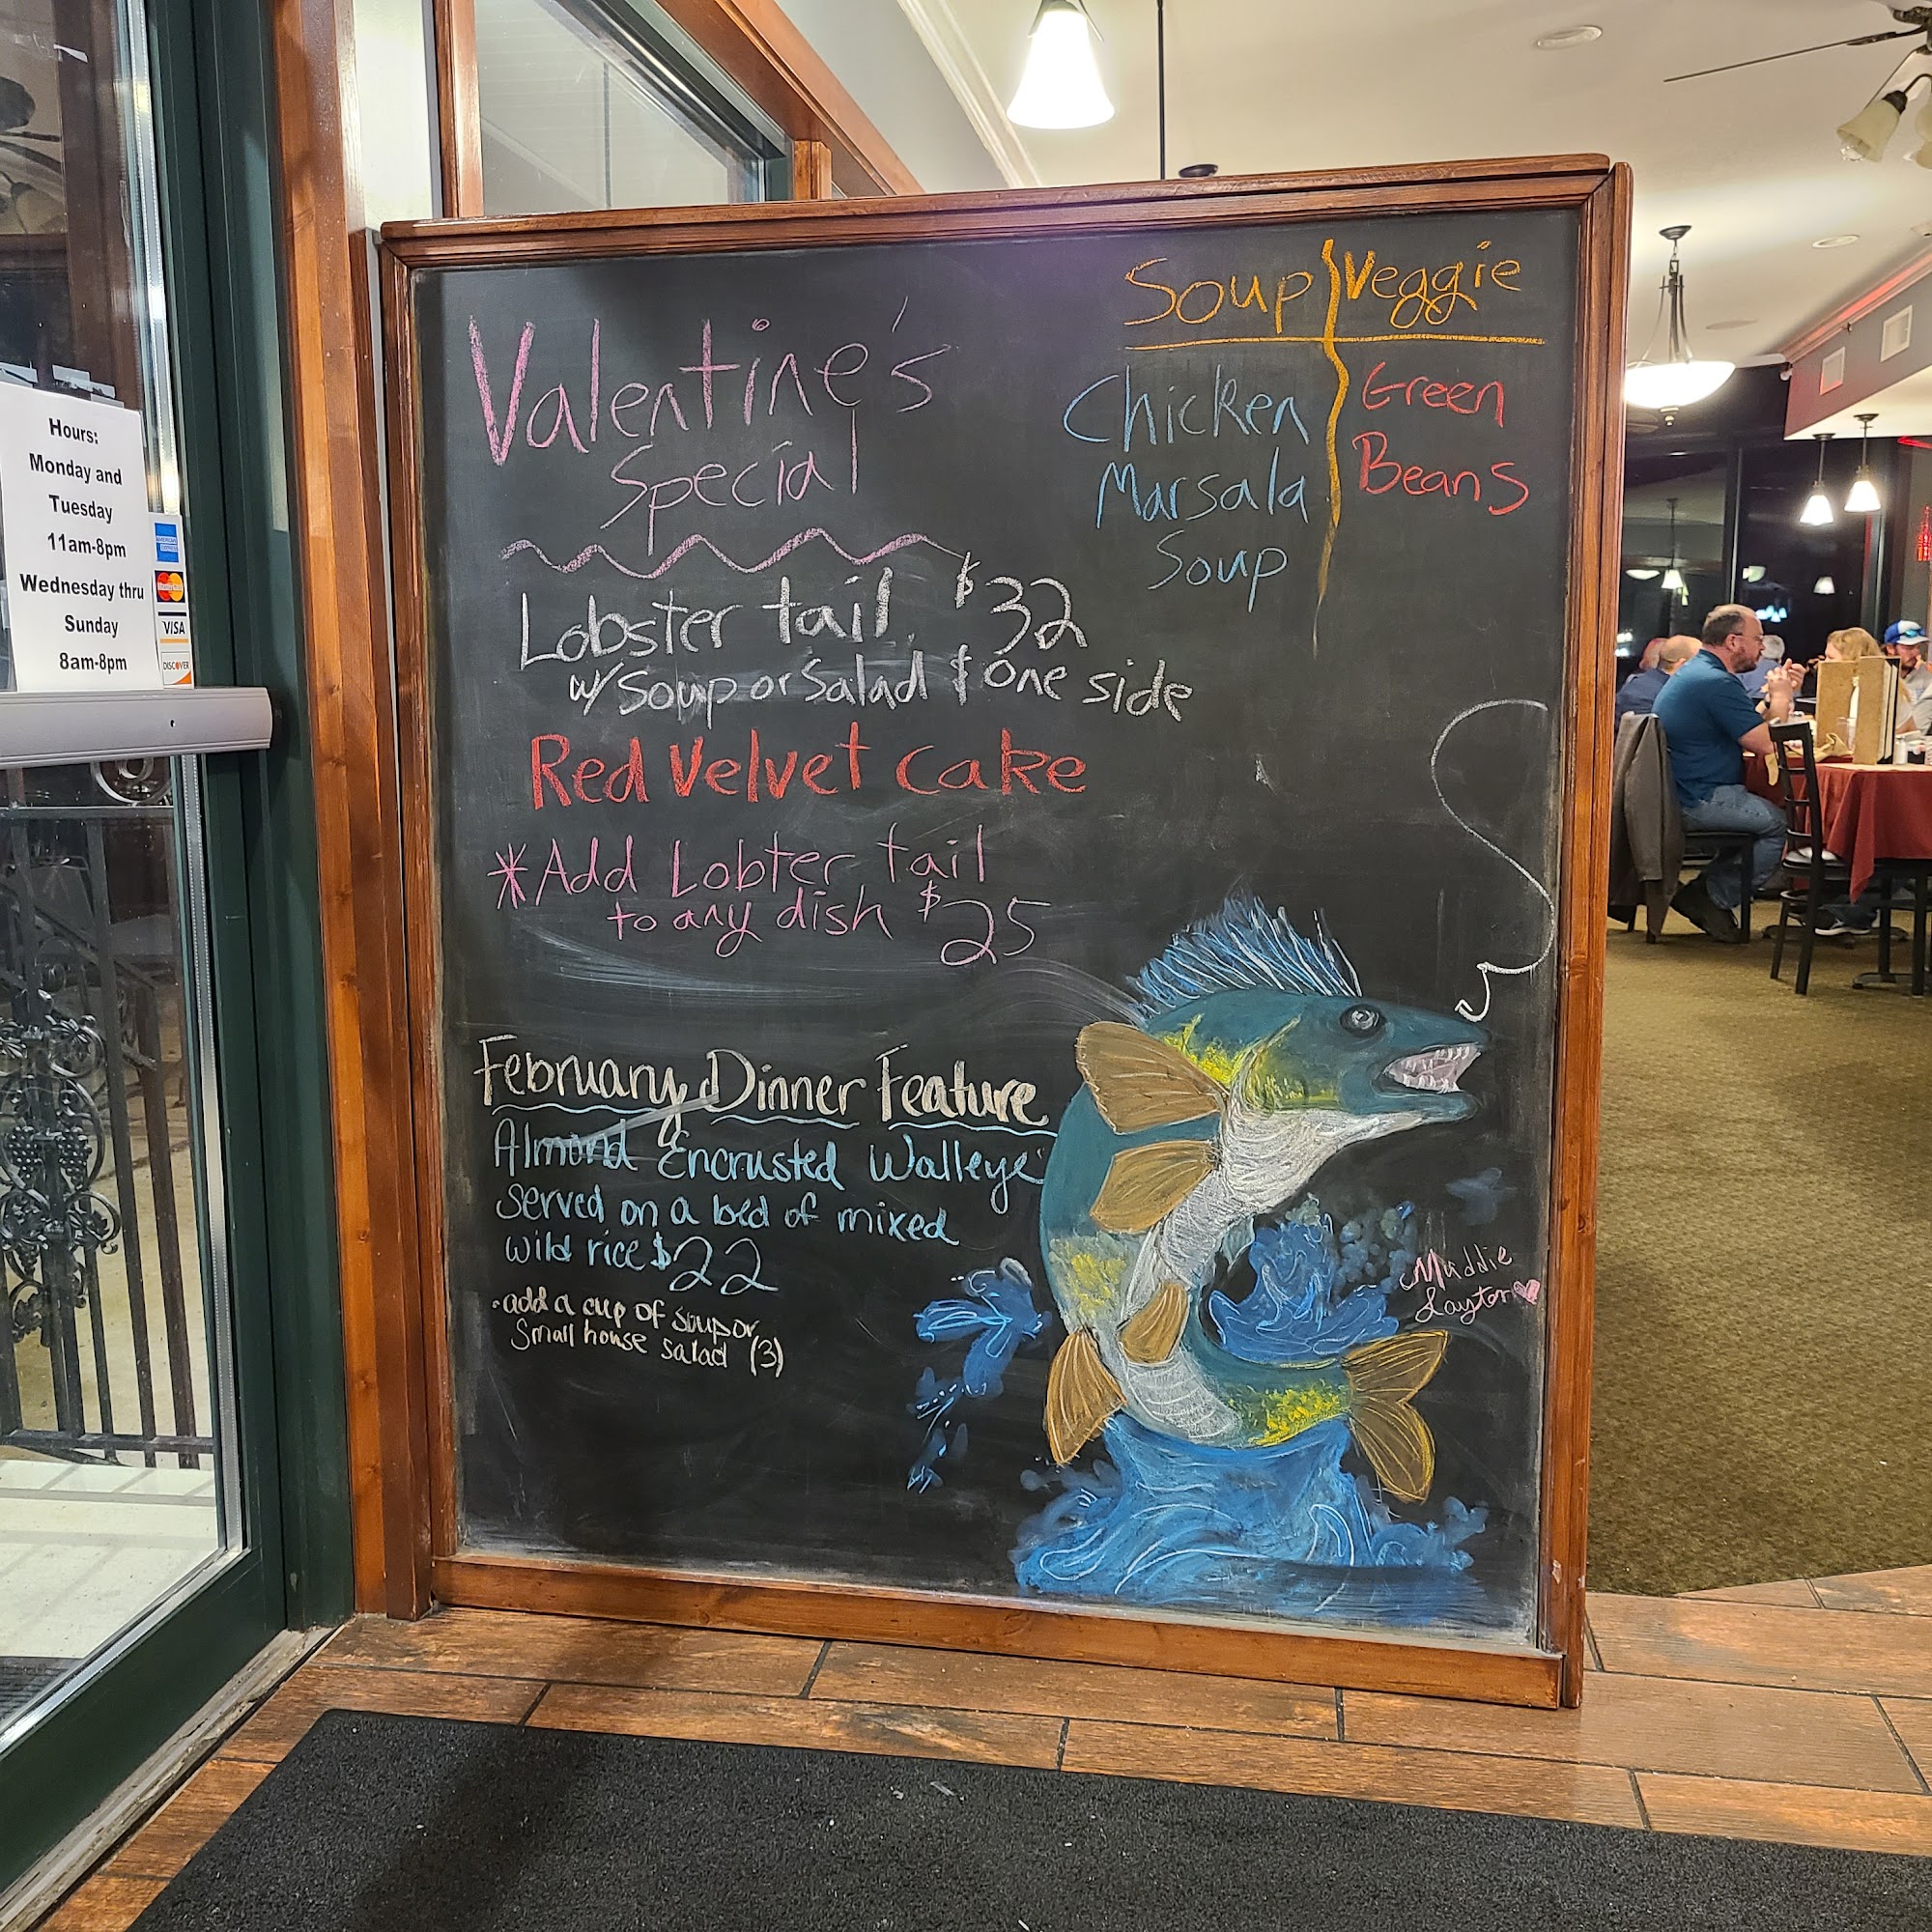 Hours:
Monday and
Tuesday
11am-8pm
Wednesday thru
Sunday
8am-8pm
AMERICAN EXPRESS
MasterCard
VISA
DISCOVER
Valentine's
Special
Lobster tail $32
w/ Soup or Salad & one side
Red Velvet Cake
*Add Lobter tail
to any dish $25
Soup Veggie
Chicken
Marsala
Soup
Green
Beans
February Dinner Feature
Almond Encrusted Walleye
Served on a bed of mixed
wild rice $22
·add a cup of soup or
Small house salad (3)
Maddie
Layton